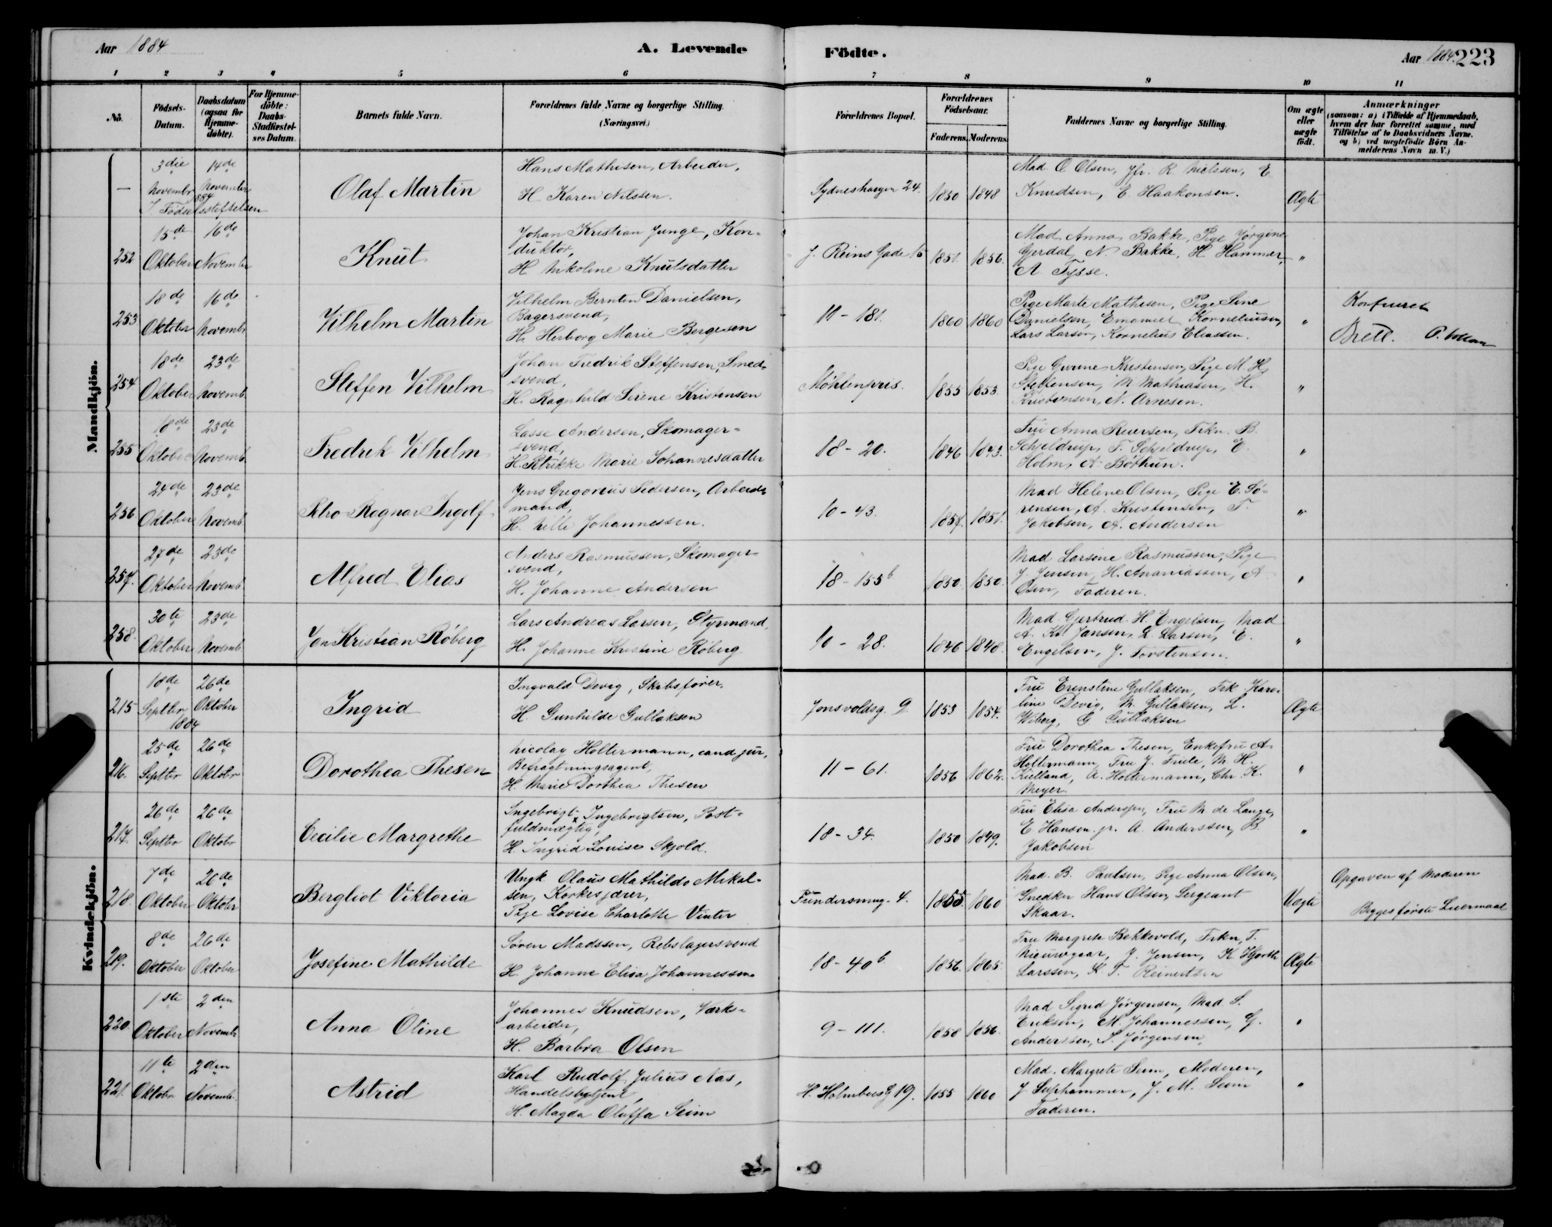 Aar 1884 A. Levende Födte. Aar 1884. 223
1 2 3 4 5 6 7 8 9 10 11
No. Födsels-Datum. Daabsdatum (ogsaa for Hjemmedöbte). For Hjemmedöbte: Daabs-Stadfæstelses Datum. Barnets fulde Navn. Forældrenes fulde Navne og borgerlige Stilling. (Næringsvei.) Forældrenes Bopæl. Forældrenes Födselsaar. Faderens. Moderens. Faddernes Navne og borgerlige Stilling. Om ægte eller uægte födt. Anmærkninger (saasom: a) i Tilfælde af Hjemmedaab, hvem der har forrettet samme, med Tilföielse af to Daabsvidners Navne, og b) ved uægtefödte Börn Anmelderens Navn m. V.)
Mandkjön.
— 3die November 14de November 1884 I Fødselsstiftelsen Olaf Martin Hans Mathesen, Arbeider,
H. Karen Nilssen. Sydneshaugen 24. 1850 1848 Mad O Olsen, Jfr. R. Nielsen, E
Knudsen, E. Haakonsen. Ægte
252 15de Oktober 16de November Knut Johan Kristian Junge, Konduktør,
H Nikoline Knutsdatter J. Reins Gade 16 1851 1856. Mad. Anna Bakke, Pige Jørgine
Gjerdal, N. Bakke, H. Hammer,
A Tysse. "
253 18de Oktober 16de Novembr Vilhelm Martin Vilhelm Bernten Danielsen,
Bagersvend,
H. Herborg Marie Borgesen 11 - 181. 1860 1860 Pige Marte Mathesen, Pige Sine
Danielsen, Emanuel Korneliusen,
Lars Larsen, Kornelius Eliassen. " Konfereret
Brett.
254 18de Oktober 23de Novemb. Steffen Vilhelm Johan Fredrik Steffensen, Smedsvend,
H. Ragnhild Serine Kristensen Møhlenpris. 1855 1853 Pige Gurine Kristensen, Pige M. H.
Steffensen, M Mathiasen, H.
Kristensen, N. Arnesen. "
255 18de Oktober 23de Novemb. Fredrik Vilhelm Lasse Andersen, Skomagersvend,
H. Petrikke Marie Johannesdatter 18 - 20. 1846 1843. Fru Anna Riversen, Frkn. B.
Schjeldrup, F. Schjeldrup, E.
Holm, A Bøthun. "
256 24de Oktober 23de Novemb. Ragnar Ingolf Jens Gregorius Pedersen, Arbeidsmand,
H. Nelle Johannessen. 10 - 43. 1857. 1851. Mad Helene Olsen, Pige E. Sørensen,
A. Kristensen, T.
Jakobsen, A. Andersen "
257. 28de Oktober 23de Novemb. Alfred Elias Anders Rasmussen, Skomagersvend,
H. Johanne Andersen 18 - 155b 1850. 1850. Mad Larsine Rasmussen, Pige
J Jensen, H. Ananiassen, A
Olsen, Faderen. "
258. 30te Oktober 23de Novemb. Jon Kristian Røberg Lars Andreas Larsen, Styrmand,
H. Johanne Kristine Røberg 10 - 28. 1846 1848. Mad Gjertrud H. Engelsen, Mad
A. Jansen, L Larsen, E.
Engelsen, J. Torstensen. "
Kvindekjön.
215 18de Septbr 1884 26de Oktober Ingrid Ingvald Devig, Skibsfører,
H Gunhilde Gullaksen Jonsvoldsg. 9 1853 1854. Fru Ernstine Gullaksen, Frk Karoline
Devig, M. Gullaksen, L.
Wiberg, G Gullaksen Ægte
216. 25de Septbr 26de Oktobr Dorothea Thesen Nicolay Holtermann, cand jur,
Befragtningsagent,
H Marie Dorthea Thesen 11 - 61. 1856 1862. Fru Dorothea Thesen, Enkefru A.
Holtermann, Fru J. Friele, M. H.
Kielland, A. Holtermann, Chr. K.
Meyer. "
217. 26de Septbr 26de Oktobr Cecilie Margrethe Ingebrigt Ingebrigtsen, Postfuldmægtig,
H Ingrid Louise Skjold. 18 - 34. 1850 1849. Fru Elisa Anderssen, Fru M de Lange,
E Hansen jr. A Anderssen, B
Jakobsen "
218 7de Oktober 26de Oktober Bergliot Viktoria Ungk Olaus Mathildo Mikalsen,
Pige Lovise Charlotte Vinter 4. 1855 1860 Mad. B. Paulsen, Pige Anna Olsen,
Snedker Hans Olsen, Sergeant
Skaar. Uægte Opgaven af Moderen
Begges første Leiermaal
219. 8de Oktober 26de Oktober Josefine Mathilde Søren Madssen, Rebslagersvend
H Johanne Elisa Johannessen 18 - 40b 1856. 1865 Fru Margrete Bekkevold, Frkn. T.
J. Jensen, K Hjorth
Larssen, K F. Reinertsen Ægte
220 1ste Oktober 2den Novembr Anna Oline Johannes Knudsen, Værksarbeider,
H. Barbra Olsen 9 - 111. 1858 1856. Mad Sigrid Jørgensen, Mad S.
Eriksen, M. Johannessen, G.
Anderssen, S. Jørgensen "
221. 11te Oktobr 2den Novemb. Astrid Karl Rudolf Julius Aas,
Handelsbetjent,
H. Magda Oluffa Seim H. Holmboesg 19. 1855 1860 Mad. Margrete Seim, Moderen,
J. M. Seim
Faderen. "